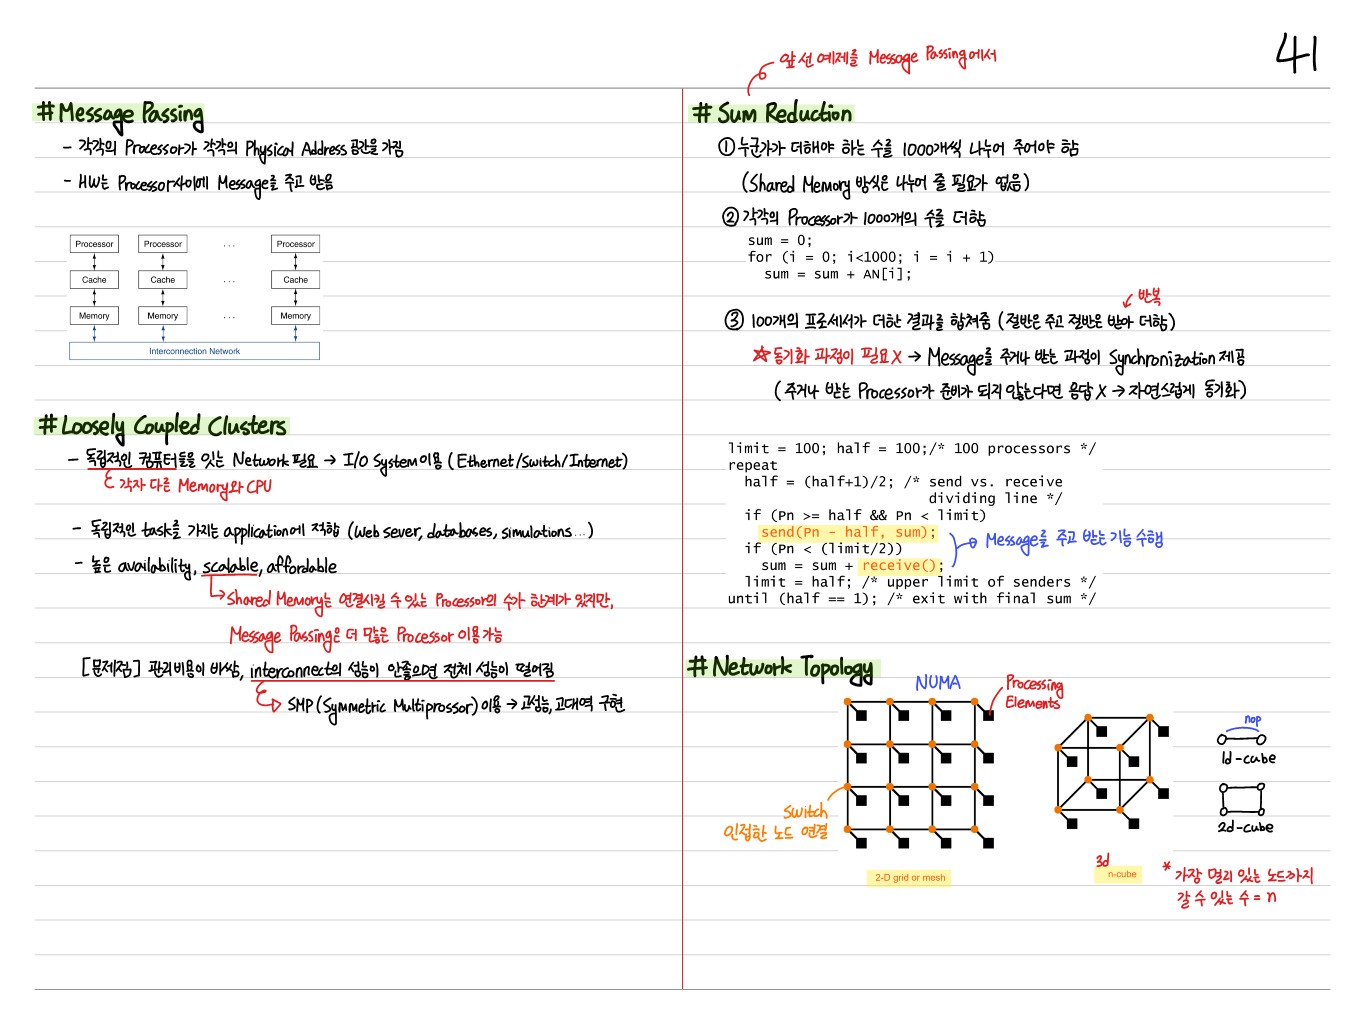 41
# Message Passing
- 각각의 Processor가 각각의 Physical Address 공간을 가짐
- HW는 Processor사이에 Message를 주고 받음
Processor Processor ... Processor
Cache Cache ... Cache
Memory Memory ... Memory
Interconnection Network
# Loosely Coupled Clusters
- 독립적인 컴퓨터들을 잇는 Network 필요 → I/O System 이용 (Ethernet/Switch/Internet)
각자 다른 Memory와 CPU
- 독립적인 task를 가지는 application에 적합 (Web sever, databases, simulations...)
- 높은 availability, scalable, affordable
Shared Memory는 연결시킬 수 있는 Processor의 수가 한계가 있지만,
Message Passing은 더 많은 Processor 이용가능
[문제점] 관리비용이 바쌈, interconnect의 성능이 안좋으면 전체 성능이 떨어짐
SMP (Symmetric Multiprossor) 이용 → 고성능, 고대역 구현
앞선 예제를 Message Passing에서
# Sum Reduction
① 누군가가 더해야 하는 수를 1000개씩 나누어 주어야 함
(Shared Memory 방식은 나누어 줄 필요가 없음)
② 각각의 Processor가 1000개의 수를 더함
sum = 0;
for (i = 0; i<1000; i = i + 1)
sum = sum + AN[i];
반복
③ 100개의 프로세서가 더한 결과를 합쳐줌 (절반은 주고 절반은 받아 더함)
☆ 동기화 과정이 필요 X → Message를 주거나 받는 과정이 Synchronization 제공
(주거나 받는 Processor가 준비가 되지 않는다면 응답 X → 자연스럽게 동기화)
limit = 100; half = 100;/* 100 processors */
repeat
half = (half+1)/2; /* send vs. receive
dividing line */
if (Pn >= half && Pn < limit)
send(Pn - half, sum);
if (Pn < (limit/2))
sum = sum + receive();
limit = half; /* upper limit of senders */
until (half == 1); /* exit with final sum */
Message를 주고 받는 기능 수행
# Network Topology
NUMA
Processing
Elements
Switch
인접한 노드 연결
2-D grid or mesh
3d
n-cube
nop
1d-cube
2d-cube
* 가장 멀리 있는 노드까지
갈 수 있는 수 = n